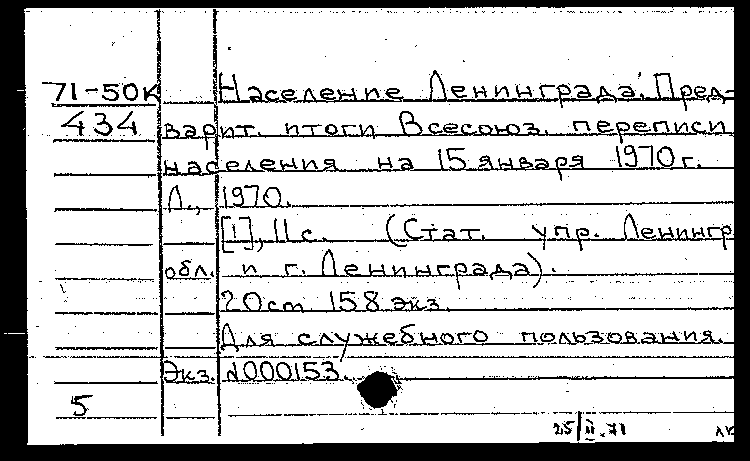 71-50к Население Ленинграда. Пред-
434 варит. итоги Всесоюз. переписи
населения на 15 января 1970 г.
Л., 1970.
[1], 11с. (Стат. упр. Ленингр
обл. и г. Ленинграда).
20см 158 экз.
Для служебного пользования.
Экз. №000153.
5
25/II.71
лк